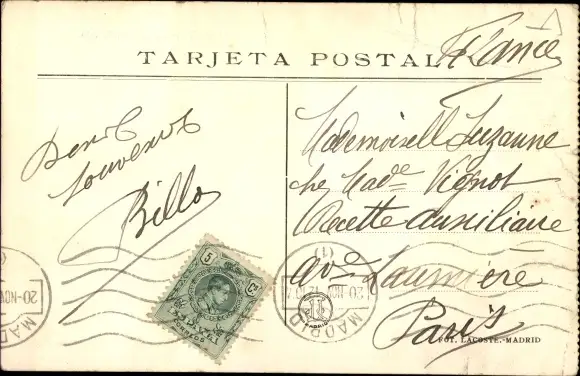 TARJETA POSTAL
France
Bons
Souvenirs
Billo
Mademoiselle Suzanne
chez Made Vignot
Recette Auxiliaire
Ave Laumière
Paris
5 Cs
CORREOS
20-NOV
MADRID
20-NOV
MADRID
FOT. LACOSTE.-MADRID